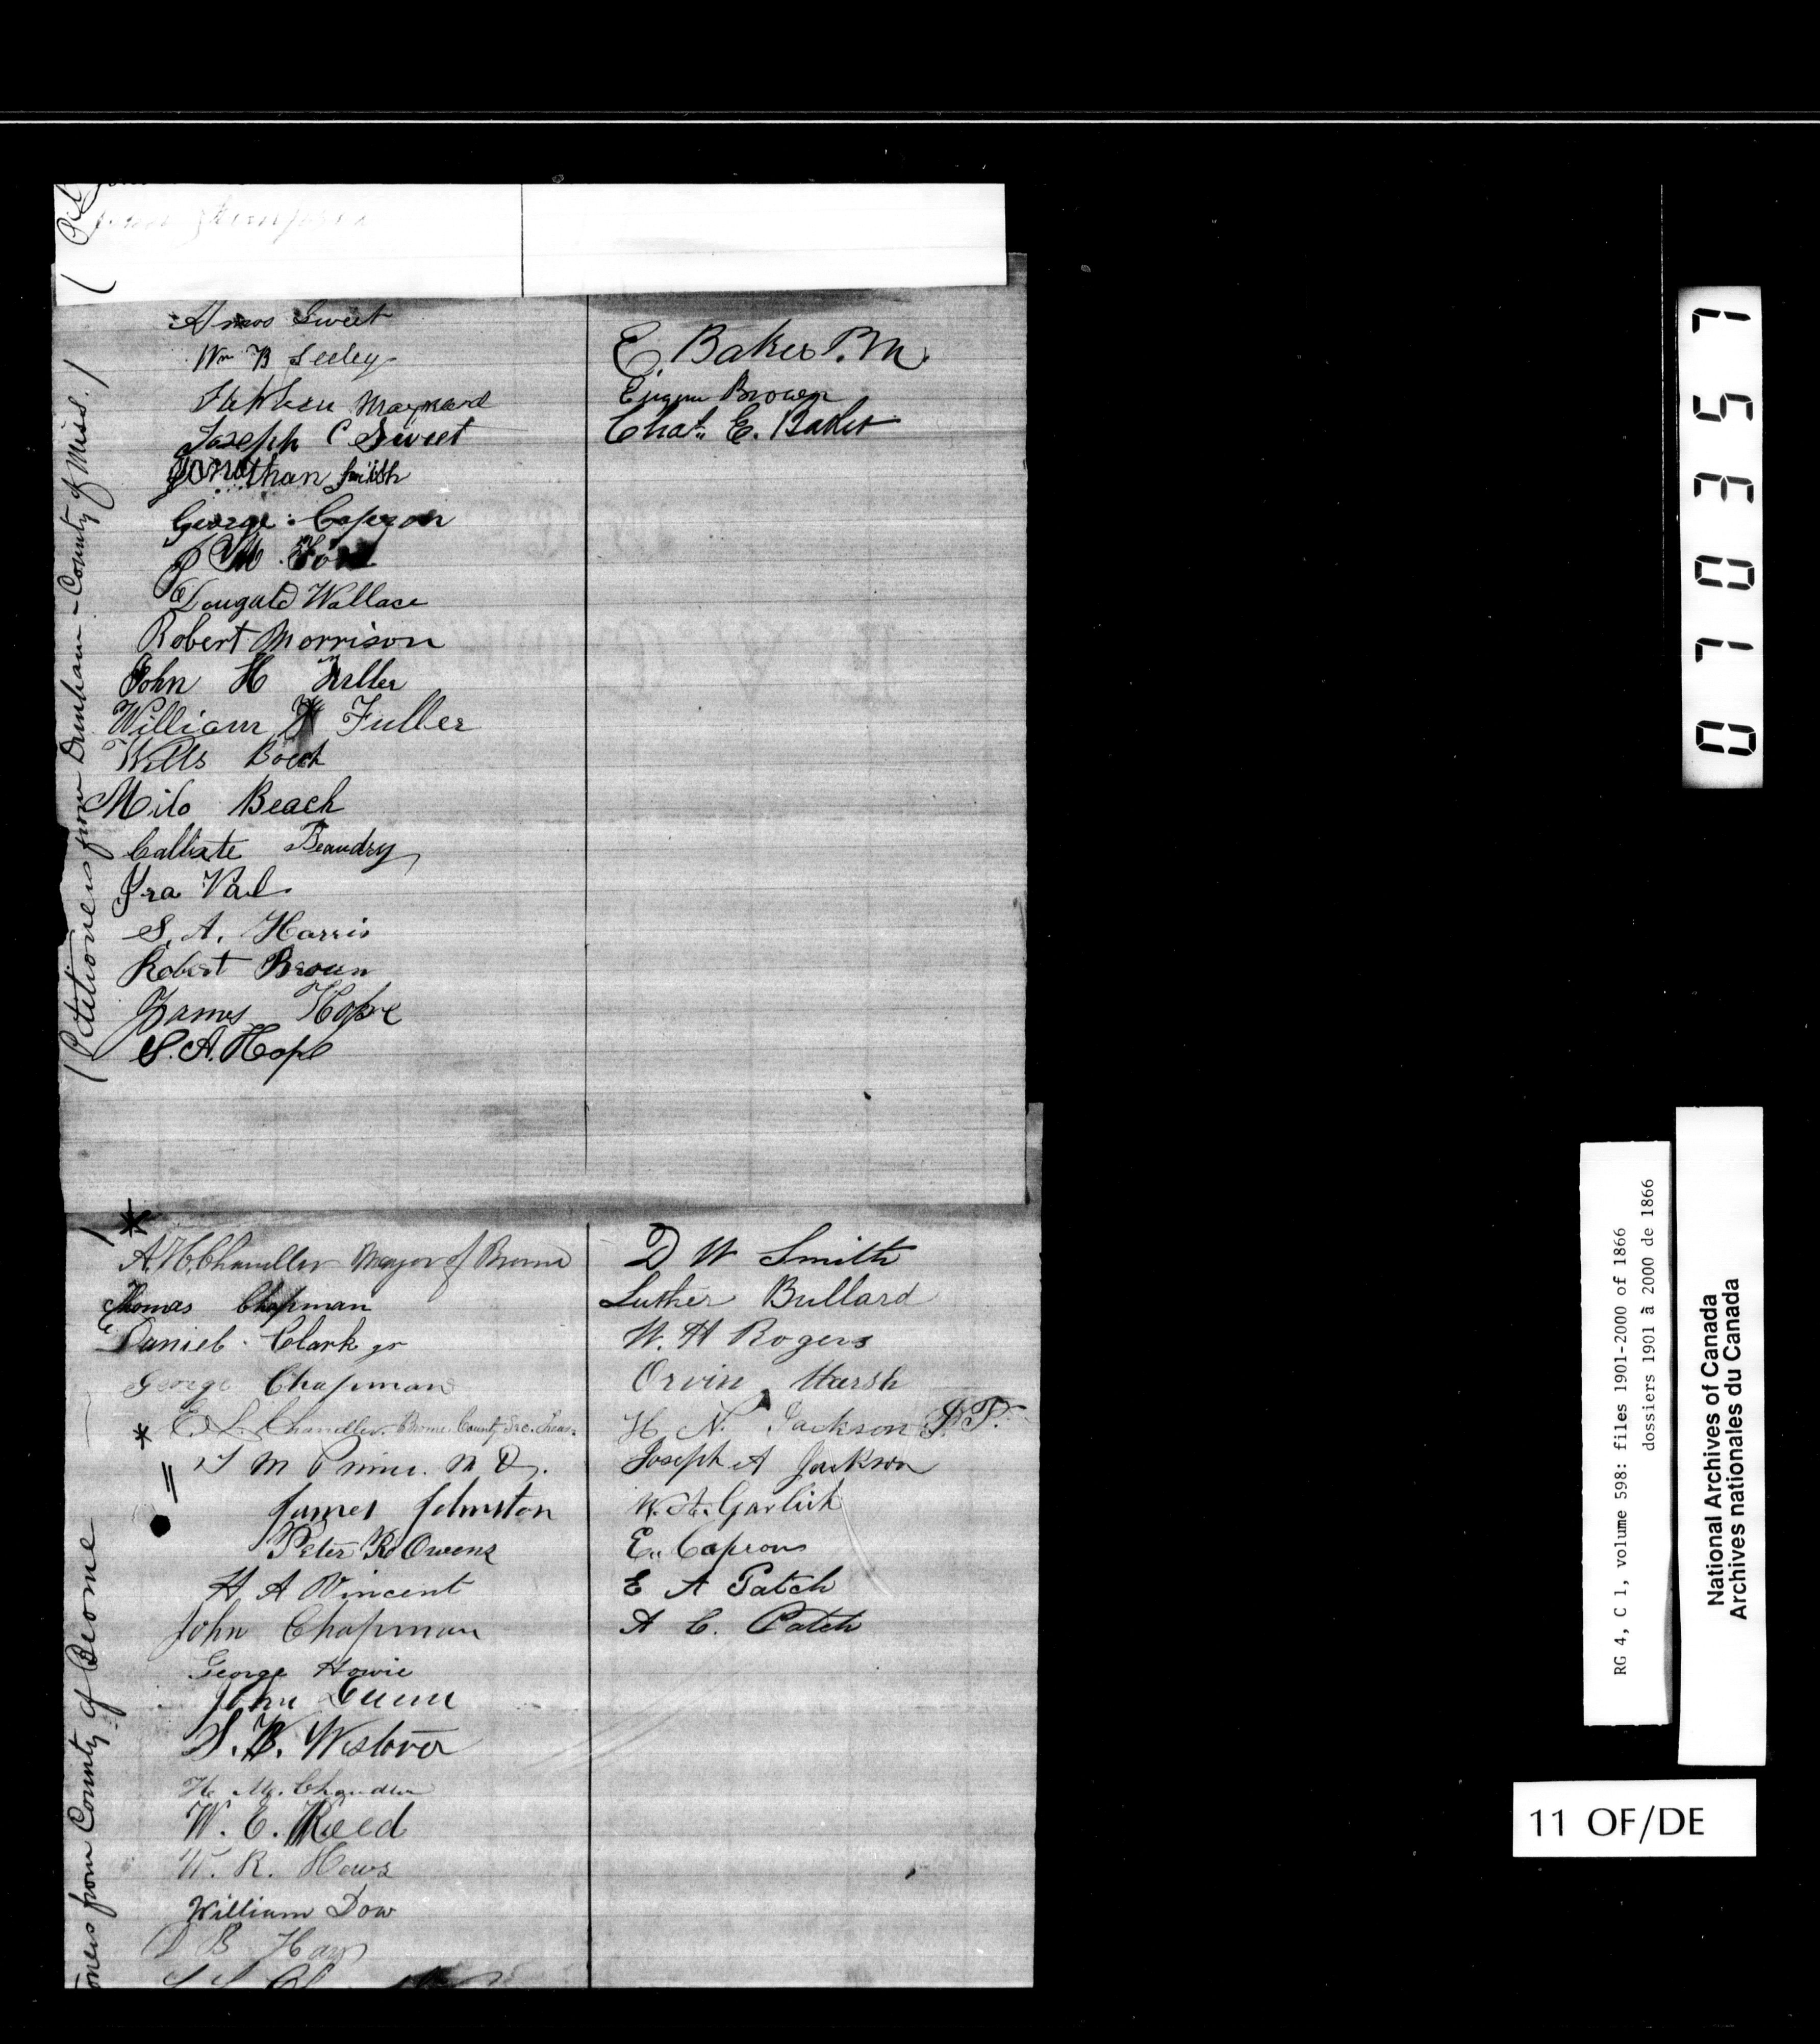 Simpson
(Petitioners from Dunham - County of Miss.)
Amos Sweet
Wm B Seeley
Maynard
Joseph C Sweet
Jonathan Smith
George Capron
J M
Dougald Wallace
Robert Morrison
John H Fuller
William H Fuller
Wills Beach
Milo Beach
Calixte Beaudry
Ira Vail
S. A. Harris
Robert Brown
James Hope
S. A. Hope
E. Baker P.M.
Eugene Brown
Chas. E. Baker
oners from County of Brome
A. H. Chandler Mayor of Brome
Thomas Chapman
Daniel Clark jr
George Chapman
E. L. Chandler. Brome County Sec. Treas.
M Prime. M D.
James Johnston
Peter R Owens
H A Vincent
John Chapman
George Howie
John Dunn
S. B. Westover
H. M. Chandler
W. E. Reed
W. R. Hows
William Dow
D B Hays
D W Smith
Luther Bullard
W. H Rogers
Orvin Marsh
H. N. Jackson J.P.
Joseph A Jackson
W. A. Garlick
E. Capron
E A Patch
A C. Patch
070357
RG 4, C 1, volume 598: files 1901-2000 of 1866
dossiers 1901 à 2000 de 1866
National Archives of Canada
Archives nationales du Canada
11 OF/DE